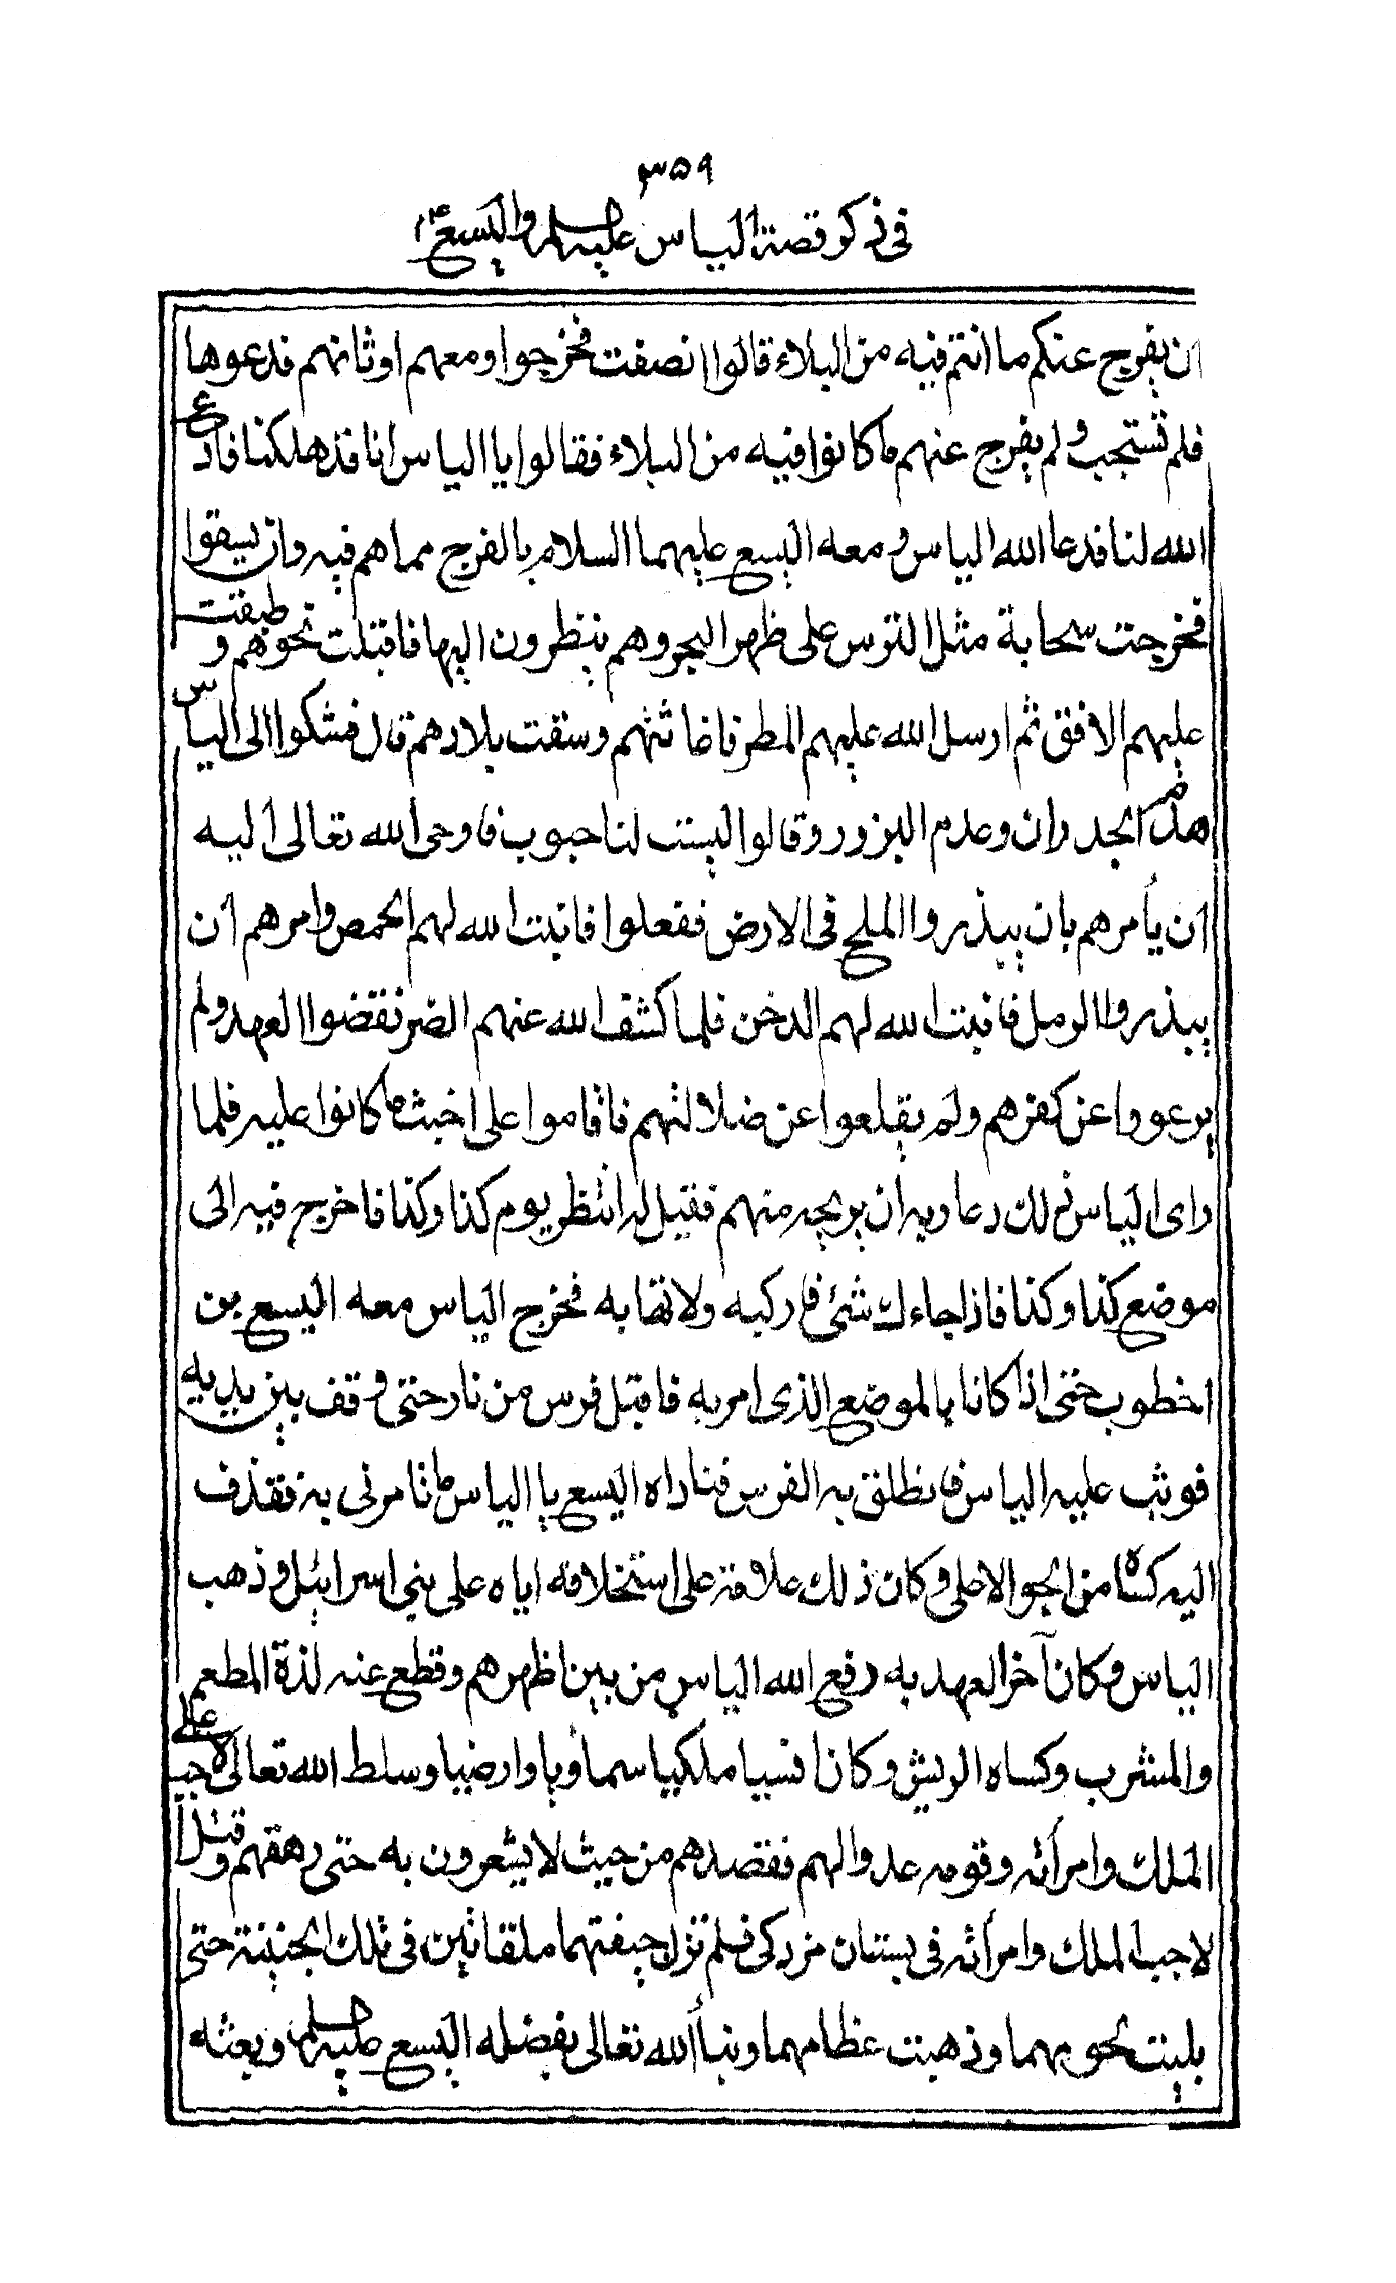 ۳۵۹
فى ذكر قصة الياس عليه السلم واليسع ۴۴
ان يفرج عنكم ما انتم فيه من البلاء قالوا انصفت فخرجوا ومعهم اوثانهم فدعوها
فلم تستجب ولم يفرج عنهم ما كانوا فيه من البلاء فقالوا يا الياس انا قد هلكنا فادع
الله لنا فدعا الله الياس ومعه اليسع عليهما السلام بالفرج مما هم فيه وان يسقوا
فخرجت سحابة مثل الترس على ظهر البحر وهم ينظرون اليها فاقبلت نحوهم و طبقت
عليهم الافق ثم ارسل الله عليهم المطر فاغاثتهم وسقت بلادهم قال فشكوا الى الياس
هدم الجدران وعدم البزور وقالوا ليست لنا حبوب فاوحى الله تعالى اليه
ان يأمرهم بان يبذروا الملح فى الارض ففعلوا فانبت الله لهم الحمص وامرهم ان
يبذروا الرمل فانبت الله لهم الدخن فلما كشف الله عنهم الضر نقضوا العهد ولم
يرعووا عن كفرهم ولم يقلعوا عن ضلالتهم فاقاموا على اخبث ما كانوا عليه فلما
راى الياس ذلك دعا ربه ان يريحه منهم فقيل له انتظر يوم كذا وكذا فاخرج فيه الى
موضع كذا وكذا فاذا جاءك شئ فاركبه ولا تهابه فخرج الياس معه اليسع بن
اخطوب حتى اذا كانا بالموضع الذى امر به فاقبل فرس من نار حتى وقف بين يديه
فوثب عليه الياس فانطلق به الفرس فناداه اليسع يا الياس ما تامرنى به فقذف
اليه كساه من الجو الاعلى وكان ذلك علامة على استخلافه اياه على بنى اسرائيل وذهب
الياس وكان آخر العهد به رفع الله الياس من بين اظهرهم وقطع عنه لذة المطعم
والمشرب وكساه الريش وكان انسيا ملكيا سماويا وارضيا وسلط الله تعالى على لاجب
الملك وامرأته وقومه عدوا لهم فقصدهم من حيث لا يشعرون به حتى رهقهم وقتل
لاجب الملك وامرأته فى بستان مزدكى فلم تزل جيفتهما ملقاتين فى تلك الجنينة حتى
بليت لحومهما وذهبت عظامهما ونبأ الله تعالى بفضله اليسع عليه السلم وبعثه